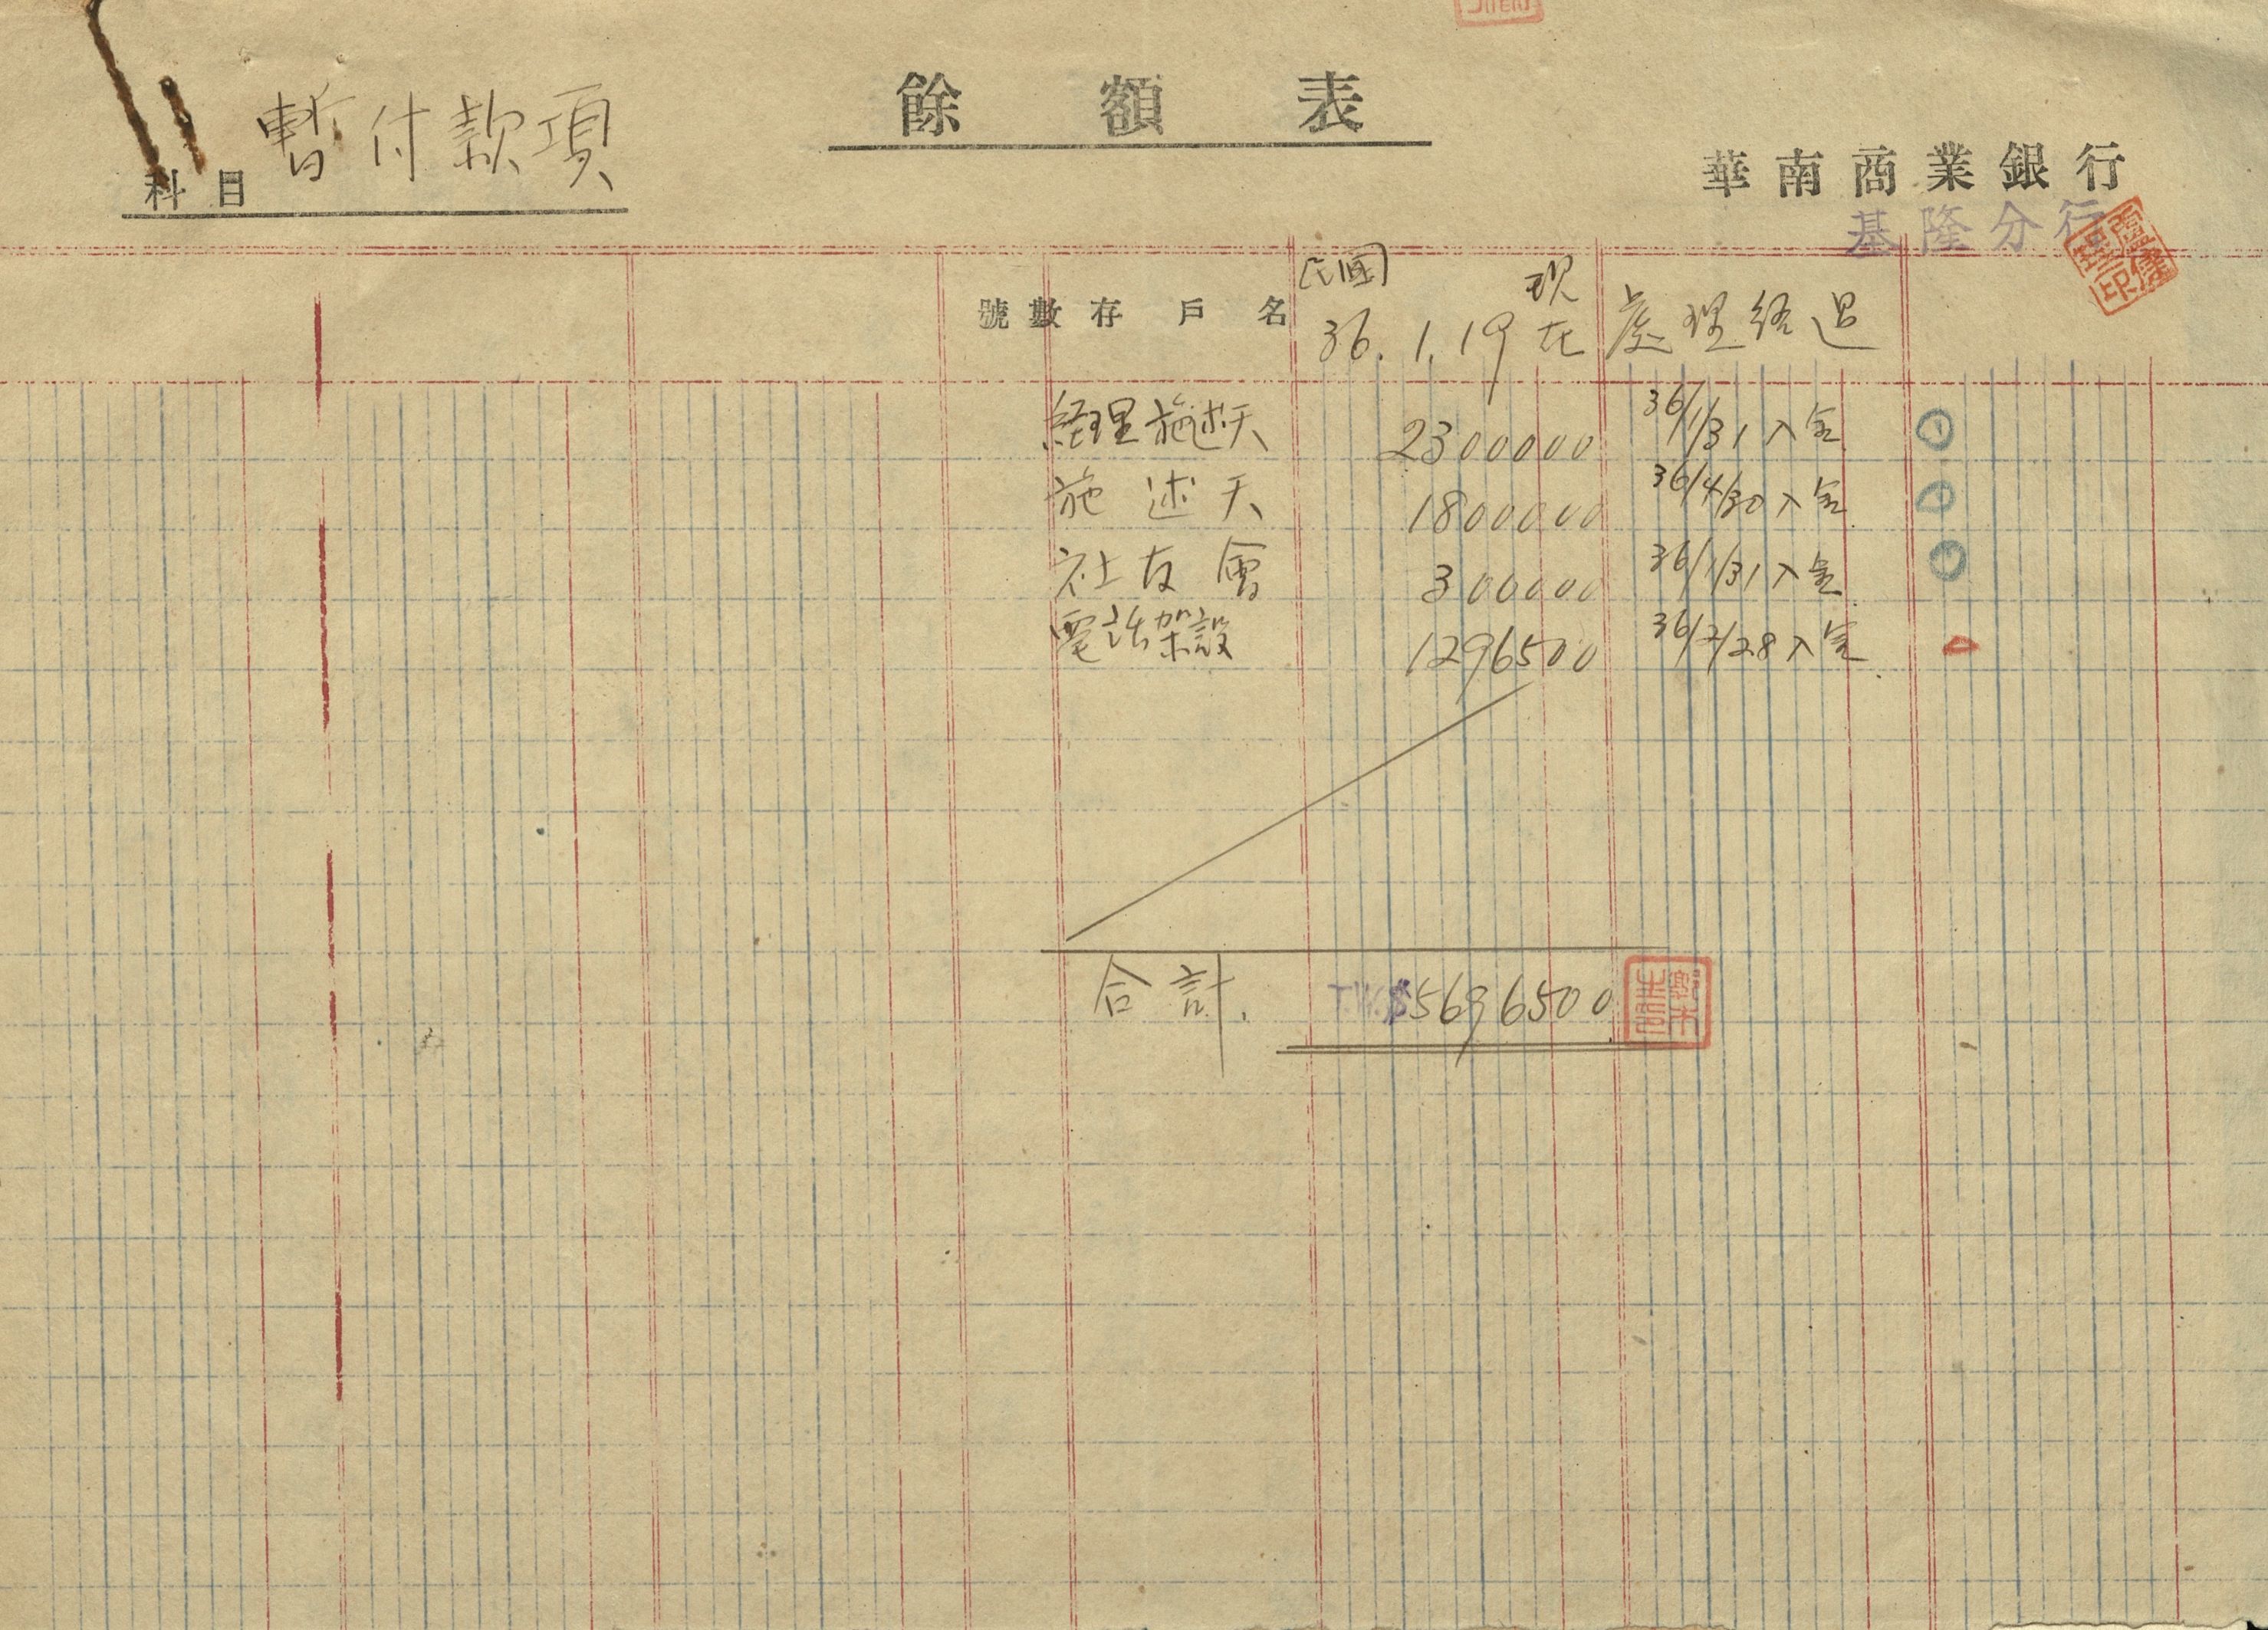 餘額表
科目 暫付款項
華南商業銀行
基隆分行
號數 存戶名 民國 36.1.19 現在 處理経過
経理施述天 2300000 36/1/31入金
施述天 1800000 36/4/30入金
社友會 300000 36/1/31入金
電話架設 1296500 36/2/28入金
合計. T.W.$5696500